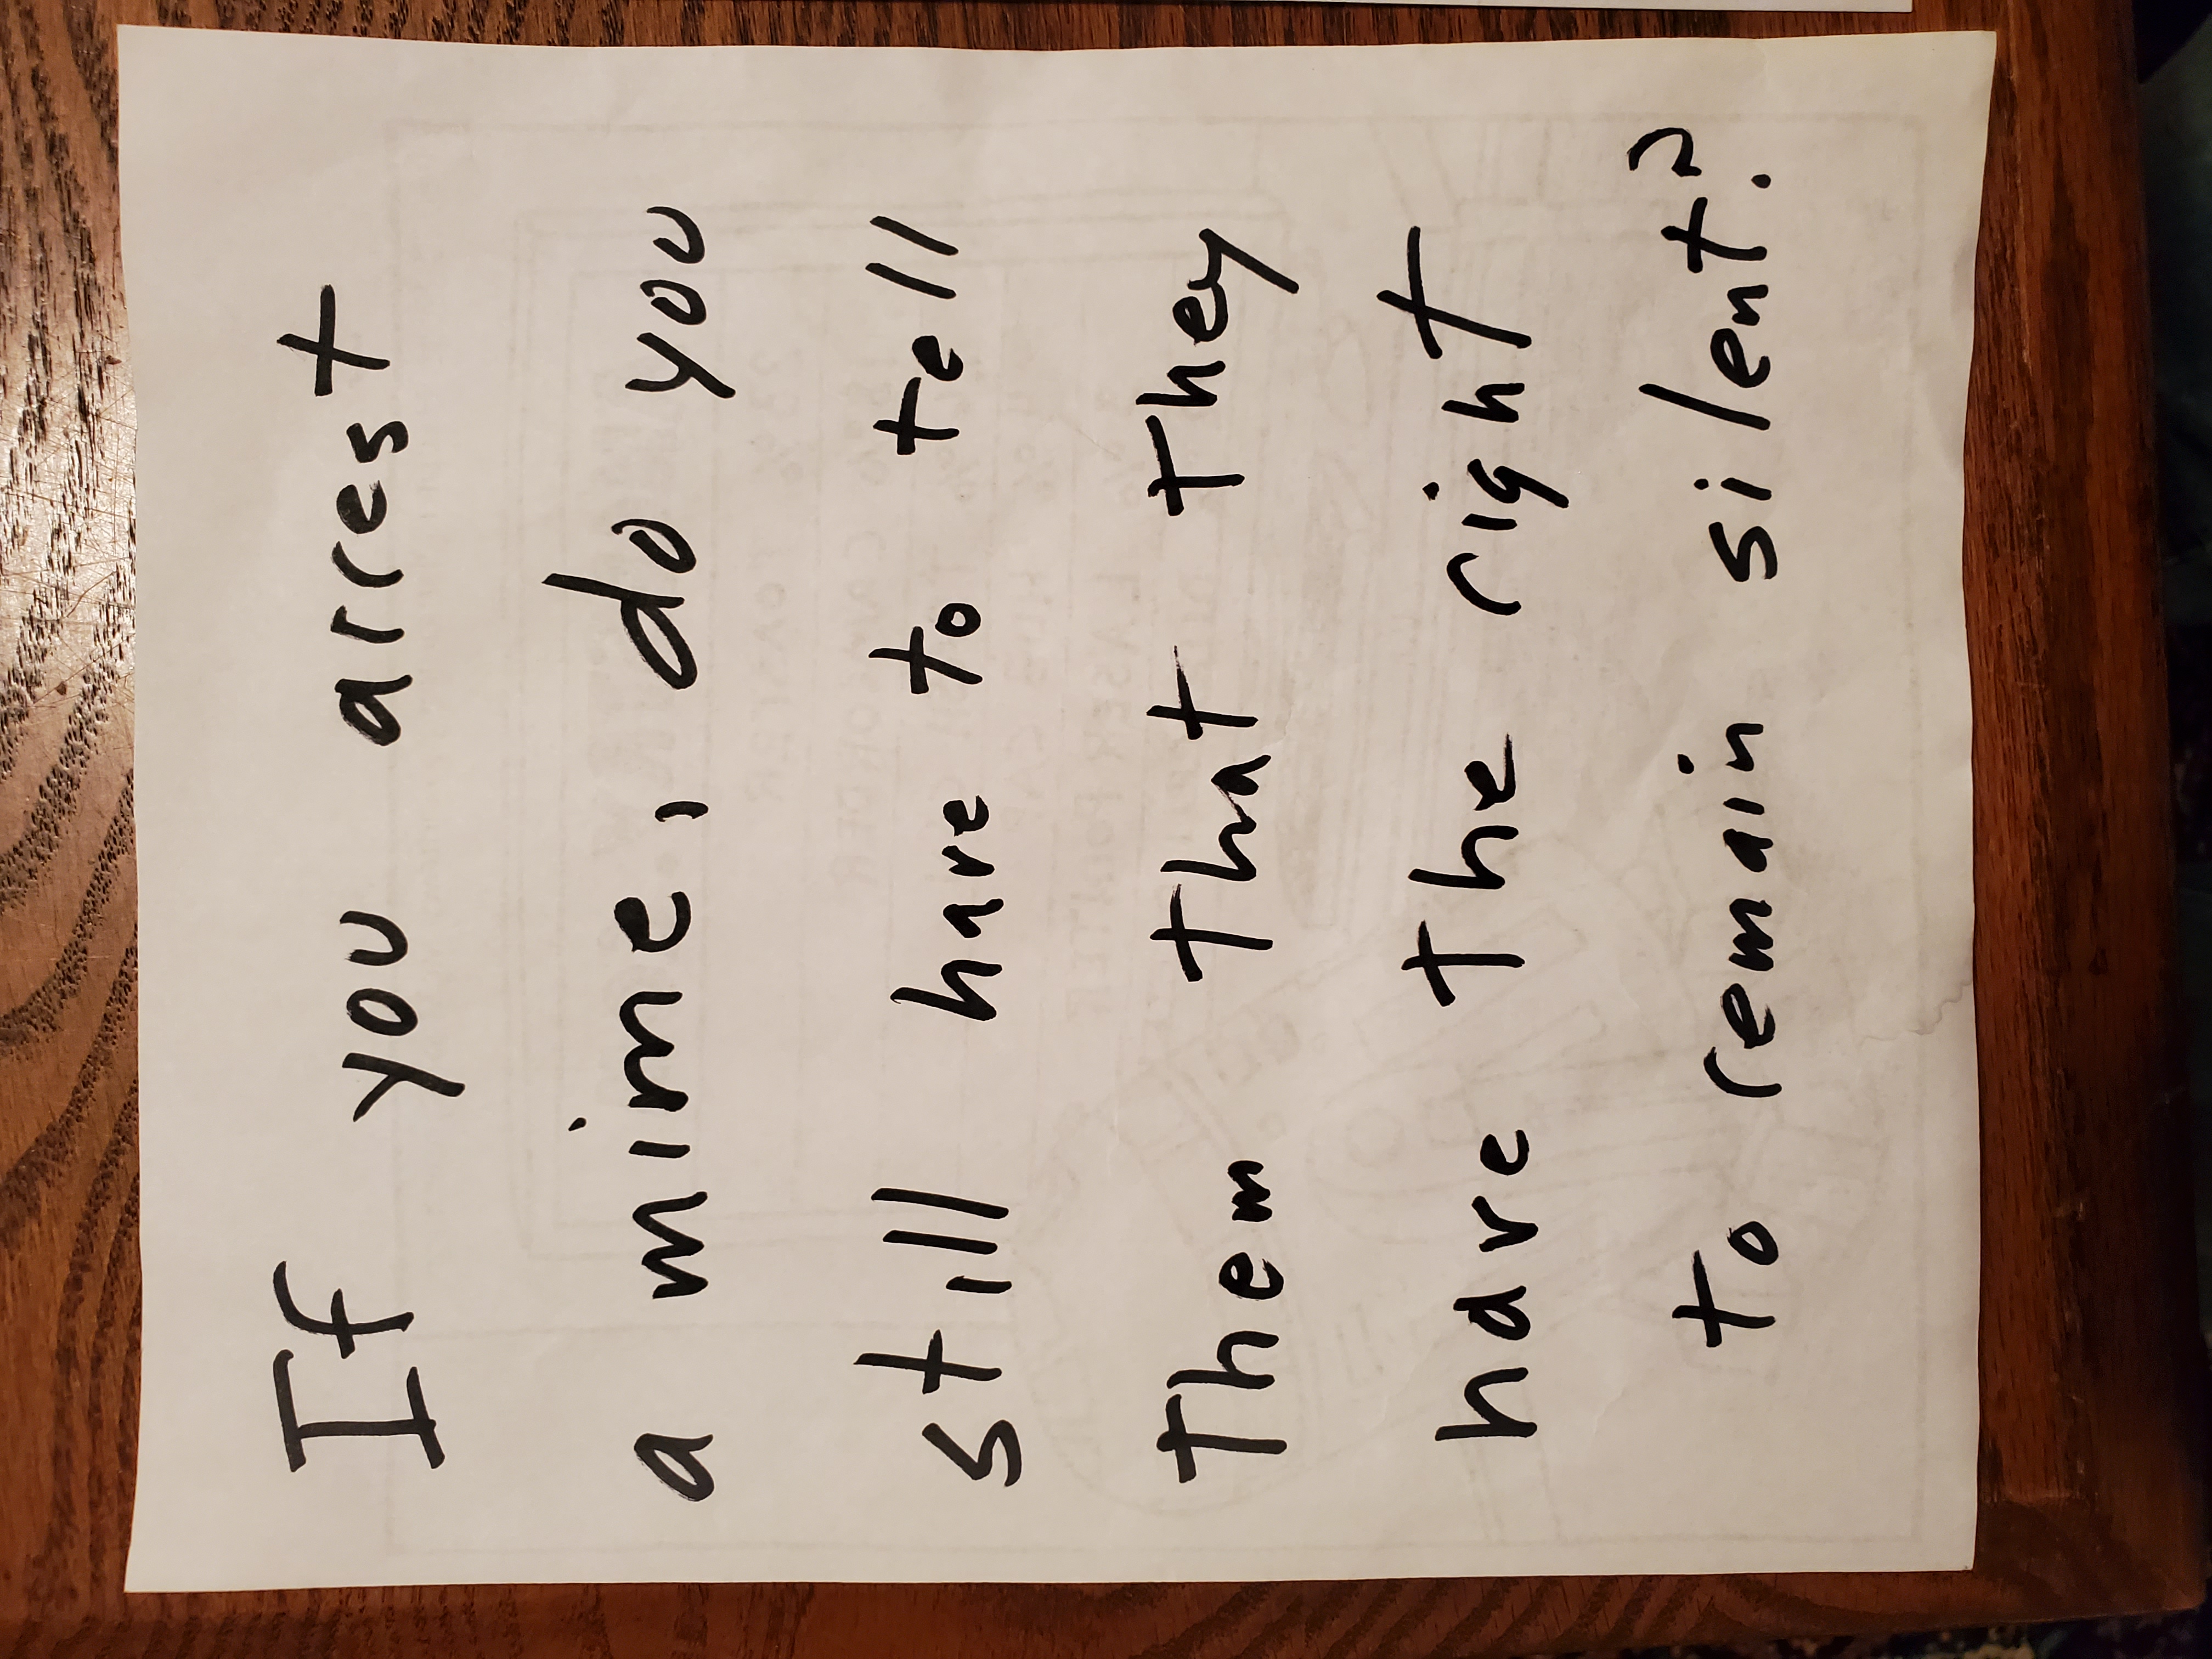 If you arrest
a mime, do you
still have to tell
them that they
have the right
to remain silent?